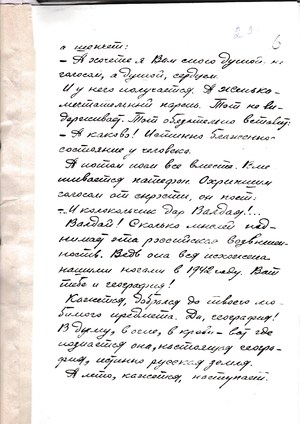 6
а шепчет:
– А хотите я Вам спою душой. не
голосом, а душой, сердцем.
И у него получается. А Женько-
местный парень. Тот не вы-
держивает. Тот обязательно вставит:
– А каково! Истинно блаженное
состояние у человека.
А потом поем все вместе. Вме
шивается патефон. Охрипшим
голосом от старости, он поет:
– И колокольчик дар Валдая!...
Валдай! Сколько мыслей под-
нимает эта российская возвышен-
ность. Ведь она вся исхожена
нашими ногами в 1942 году. Вот
тебе и география!
Кажется, добрался до твоего лю-
бимого предмета. Да, география!
В дыму, в огне, в крови – вот где
познается она, настоящая геогра-
фия, истинно русская земля.
А лето, кажется, наступает.